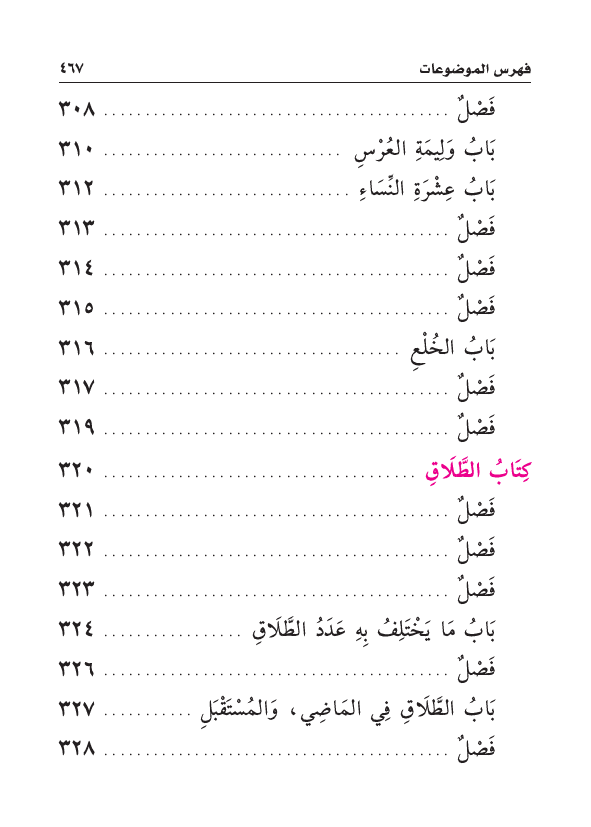 فهرس الموضوعات ٤٦٧
فَصْلٌ ........................................ ٣٠٨
بَابُ وَلِيمَةِ العُرْسِ ............................ ٣١٠
بَابُ عِشْرَةِ النِّسَاءِ ............................. ٣١٢
فَصْلٌ ........................................ ٣١٣
فَصْلٌ ........................................ ٣١٤
فَصْلٌ ........................................ ٣١٥
بَابُ الخُلْعِ ................................... ٣١٦
فَصْلٌ ........................................ ٣١٧
فَصْلٌ ........................................ ٣١٩
كِتَابُ الطَّلَاقِ ..................................... ٣٢٠
فَصْلٌ ........................................ ٣٢١
فَصْلٌ ........................................ ٣٢٢
فَصْلٌ ........................................ ٣٢٣
بَابُ مَا يَخْتَلِفُ بِهِ عَدَدُ الطَّلَاقِ ................. ٣٢٤
فَصْلٌ ........................................ ٣٢٦
بَابُ الطَّلَاقِ فِي المَاضِي، وَالمُسْتَقْبَلِ ........... ٣٢٧
فَصْلٌ ........................................ ٣٢٨